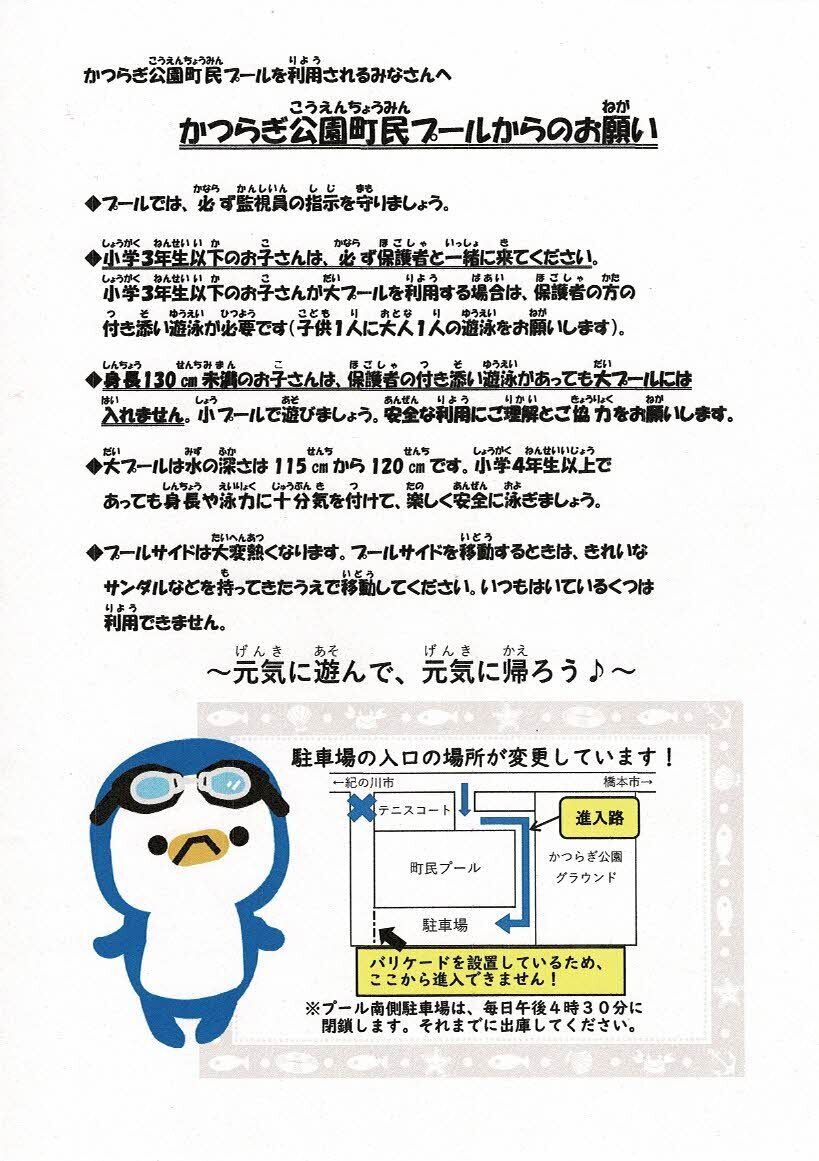 かつらぎ公園町民プールを利用されるみなさんへ
かつらぎ公園町民プールからのお願い
◆プールでは、必ず監視員の指示を守りましょう。
◆小学3年生以下のお子さんは、必ず保護者と一緒に来てください。
小学3年生以下のお子さんが大プールを利用する場合は、保護者の方の
付き添い遊泳が必要です(子供1人に大人1人の遊泳をお願いします)。
◆身長130cm未満のお子さんは、保護者の付き添い遊泳があっても大プールには
入れません。小プールで遊びましょう。安全な利用にご理解とご協力をお願いします。
◆大プールは水の深さは115cmから120cmです。小学4年生以上で
あっても身長や泳力に十分気を付けて、楽しく安全に泳ぎましょう。
◆プールサイドは大変熱くなります。プールサイドを移動するときは、きれいな
サンダルなどを持ってきたうえで移動してください。いつもはいているくつは
利用できません。
～元気に遊んで、元気に帰ろう♪～
駐車場の入口の場所が変更しています！
←紀の川市
橋本市→
テニスコート
進入路
町民プール
かつらぎ公園
グラウンド
駐車場
バリケードを設置しているため、
ここから進入できません！
※プール南側駐車場は、毎日午後4時30分に
閉鎖します。それまでに出庫してください。